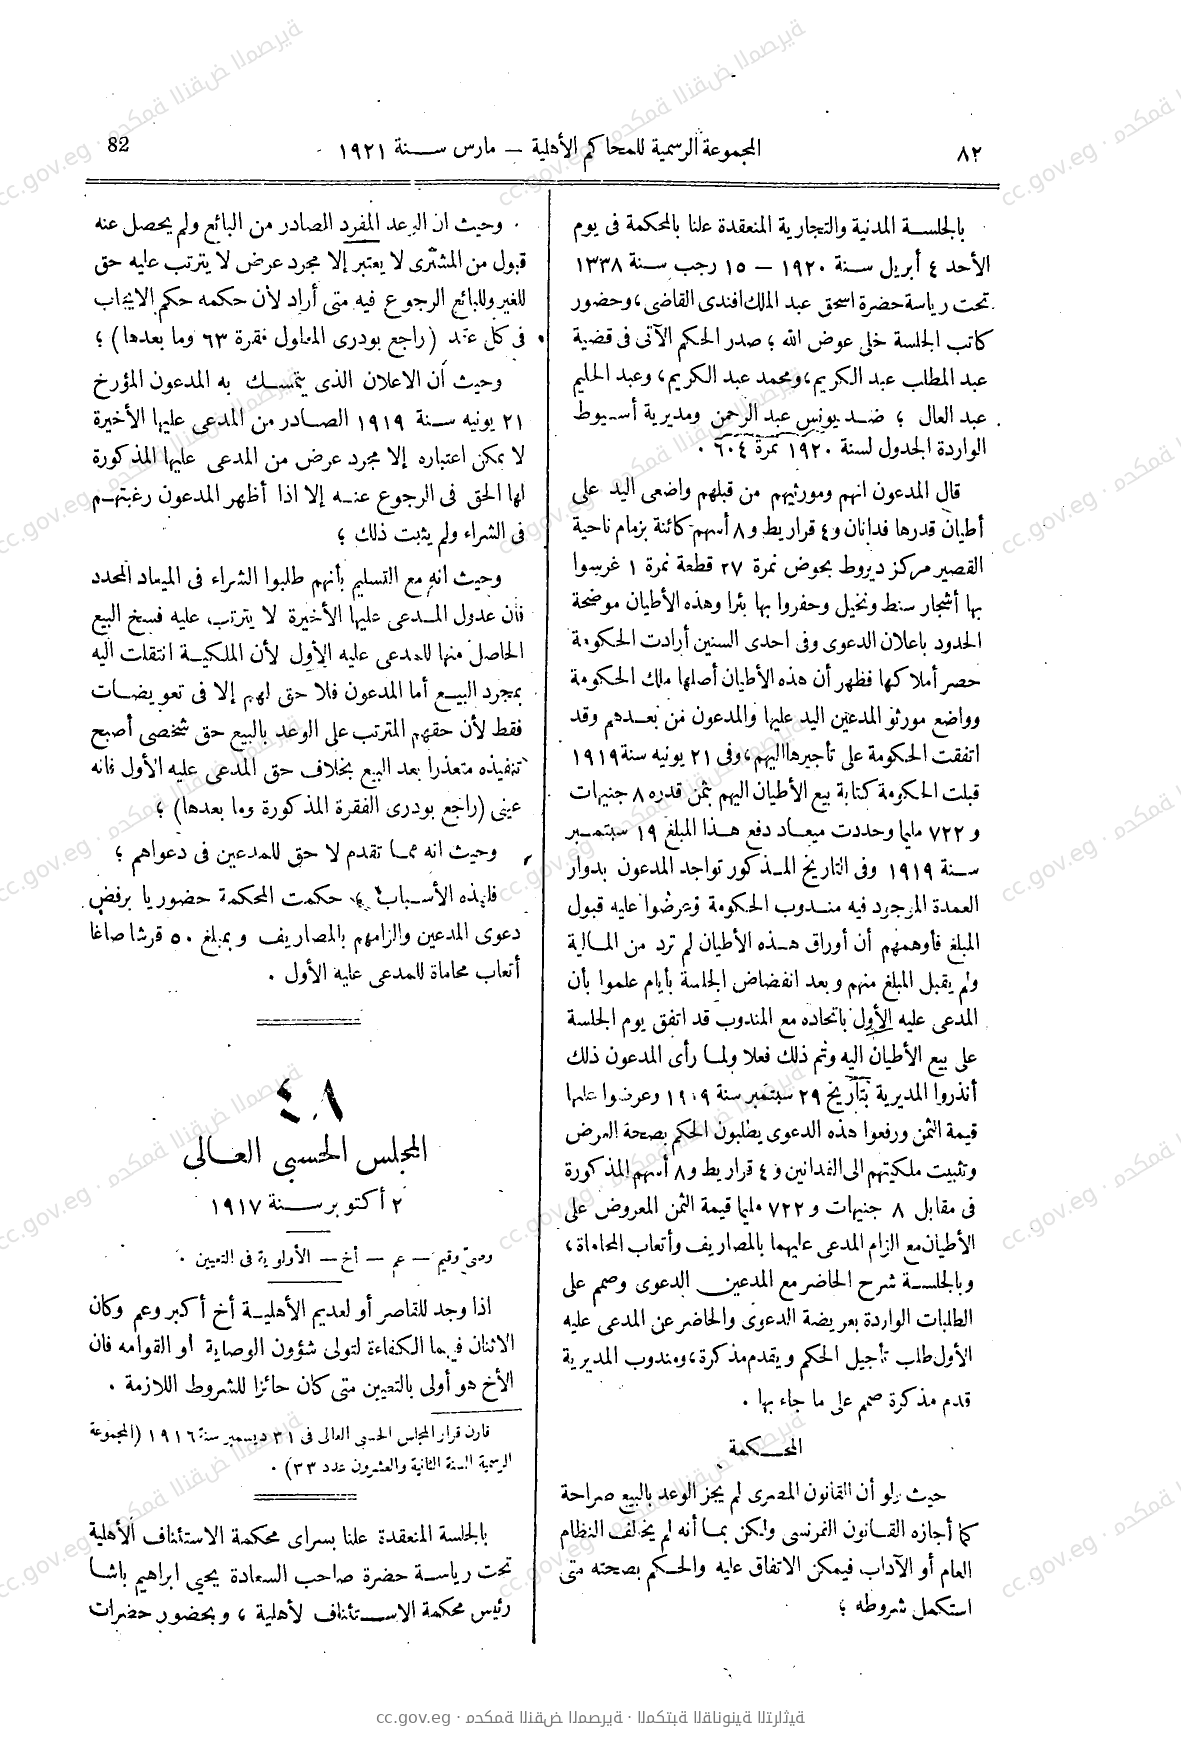 ٨٢
المجموعة الرسمية للمحاكم الأهلية – مارس سنة ١٩٢١
82
بالجلسة المدنية والتجارية المنعقدة علنا بالمحكمة فى يوم
الأحد ٤ أبريل سنة ١٩٢٠ – ١٥ رجب سنة ١٣٣٨
تحت رياسة حضرة اسحق عبد الملك افندى القاضى، وحضور
كاتب الجلسة خلى عوض الله ؛ صدر الحكم الآتى فى قضية
عبد المطلب عبد الكريم، ومحمد عبد الكريم، وعبد الحليم
عبد العال ؛ ضد يونس عبد الرحمن ومديرية أسيوط
الواردة الجدول لسنة ١٩٢٠ نمرة ٦٠٤ .
قال المدعون انهم ومورثيهم من قبلهم واضعى اليد على
أطيان قدرها فدانان و٤ قراريط و٨ أسهم كائنة بزمام ناحية
القصير مركز ديروط بحوض نمرة ٢٧ قطعة نمرة ١ غرسوا
بها أشجار سنط ونخيل وحفروا بها بئرا وهذه الأطيان موضحة
الحدود باعلان الدعوى وفى احدى السنين أرادت الحكومة
حصر أملاكها فظهر أن هذه الأطيان أصلها ملك الحكومة
وواضع مورثو المدعين اليد عليها والمدعون من بعدهم وقد
اتفقت الحكومة على تأجيرها اليهم، وفى ٢١ يونيه سنة ١٩١٩
قبلت الحكومة كتابة بيع الأطيان اليهم بثمن قدره ٨ جنيهات
و ٧٢٢ مليما وحددت ميعاد دفع هذا المبلغ ١٩ سبتمبر
سنة ١٩١٩ وفى التاريخ المذكور تواجد المدعون بدوار
العمدة الموجود فيه مندوب الحكومة وعرضوا عليه قبول
المبلغ فأوهمهم أن أوراق هذه الأطيان لم ترد من المالية
ولم يقبل المبلغ منهم وبعد انفضاض الجلسة بأيام علموا بأن
المدعى عليه الأول باتحاده مع المندوب قد اتفق يوم الجلسة
على بيع الأطيان اليه وتم ذلك فعلا ولما رأى المدعون ذلك
أنذروا المديرية بتاريخ ٢٩ سبتمبر سنة ١٩١٩ وعرضوا عليها
قيمة الثمن ورفعوا هذه الدعوى يطلبون الحكم بصحة العرض
وتثبيت ملكيتهم الى الفدانين و ٤ قراريط و٨ أسهم المذكورة
فى مقابل ٨ جنيهات و ٧٢٢ مليما قيمة الثمن المعروض على
الأطيان مع الزام المدعى عليهما بالمصاريف وأتعاب المحاماة،
وبالجلسة شرح الحاضر مع المدعين الدعوى وصمم على
الطلبات الواردة بعريضة الدعوى والحاضر عن المدعى عليه
الأول طلب تأجيل الحكم ويقدم مذكرة، ومندوب المديرية
قدم مذكرة صمم على ما جاء بها .
المحكمة
حيث ولو أن القانون المصرى لم يجز الوعد بالبيع صراحة
كما أجازه القانون الفرنسى ولكن بما أنه لم يخالف النظام
العام أو الآداب فيمكن الاتفاق عليه والحكم بصحته متى
استكمل شروطه ؛
وحيث ان الوعد المفرد الصادر من البائع ولم يحصل عنه
قبول من المشترى لا يعتبر إلا مجرد عرض لا يترتب عليه حق
للغير وللبائع الرجوع فيه متى أراد لأن حكمه حكم الايجاب
فى كل عقد (راجع بودرى المطول فقرة ٦٣ وما بعدها) ؛
وحيث أن الاعلان الذى يتمسك به المدعون المؤرخ
٢١ يونيه سنة ١٩١٩ الصادر من المدعى عليها الأخيرة
لا يمكن اعتباره إلا مجرد عرض من المدعى عليها المذكورة
لها الحق فى الرجوع عنه إلا اذا أظهر المدعون رغبتهم
فى الشراء ولم يثبت ذلك ؛
وحيث انه مع التسليم بأنهم طلبوا الشراء فى الميعاد المحدد
فان عدول المدعى عليها الأخيرة لا يترتب عليه فسخ البيع
الحاصل منها للمدعى عليه الأول لأن الملكية انتقلت اليه
بمجرد البيع أما المدعون فلا حق لهم إلا فى تعويضات
فقط لأن حقهم المترتب على الوعد بالبيع حق شخصى أصبح
تنفيذه متعذرا بعد البيع بخلاف حق المدعى عليه الأول فانه
عينى (راجع بودرى الفقرة المذكورة وما بعدها) ؛
وحيث انه مما تقدم لا حق للمدعين فى دعواهم ؛
فلهذه الأسباب ؛ حكمت المحكمة حضوريا برفض
دعوى المدعين والزامهم بالمصاريف وبمبلغ ٥٠ قرشا صاغا
أتعاب محاماة للمدعى عليه الأول .
٤٨
المجلس الحسبى العالى
٢ أكتوبر سنة ١٩١٧
وصى وقيم – عم – أخ – الأولوية فى التعيين .
اذا وجد للقاصر أو لعديم الأهلية أخ أكبر وعم وكان
الاثنان فيهما الكفاءة لتولى شؤون الوصاية أو القوامه فان
الأخ هو أولى بالتعيين متى كان حائزا للشروط اللازمة .
قارن قرار المجلس الحسبى العالى فى ٣١ ديسمبر سنة ١٩١٦ (المجموعة
الرسمية السنة الثانية والعشرون عدد ٣٣) .
بالجلسة المنعقدة علنا بسراى محكمة الاستئناف الأهلية
تحت رياسة حضرة صاحب السعادة يحيى ابراهيم باشا
رئيس محكمة الاستئناف الأهلية ، وبحضور حضرات
cc.gov.eg · محكمة النقض المصرية · المكتبة القانونية التراثية